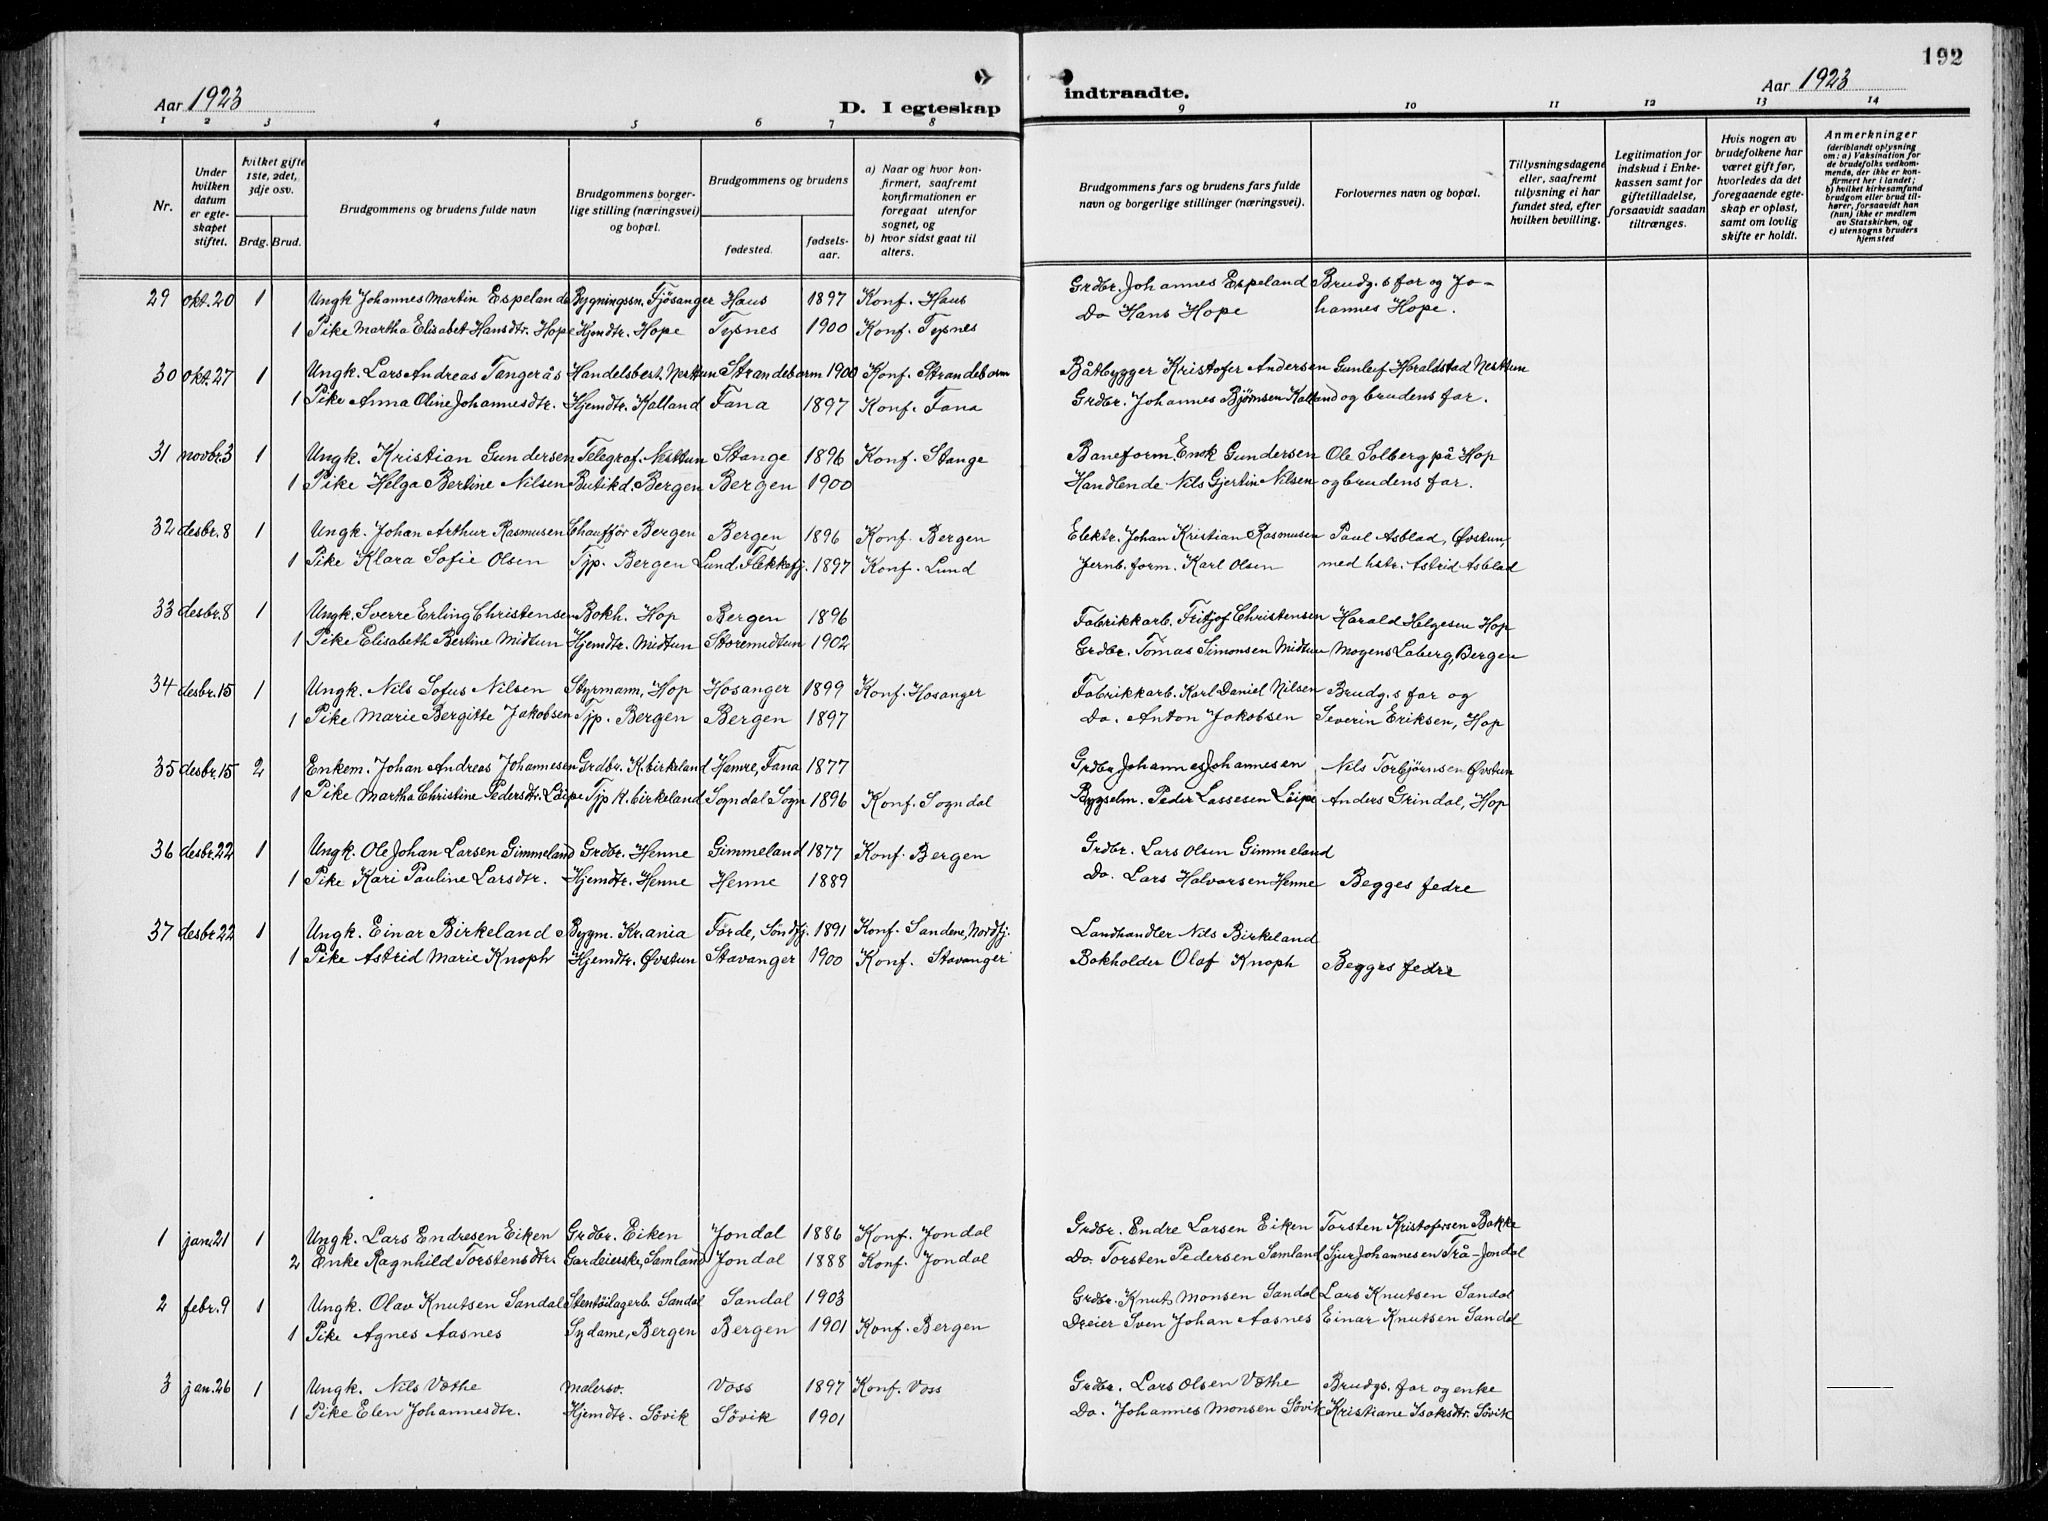 192
Aar 1923
D. I egteskap
indtraadte.
Aar 1923
1 2 3 4 5 6 7 8 9 10 11 12 13 14
Nr.
Under hvilken datum er egteskapet stiftet.
hvilket gifte 1ste, 2det, 3dje osv.
Brdg. Brud.
Brudgommens og brudens fulde navn
Brudgommens borgerlige stilling (næringsvei) og bopæl.
Brudgommens og brudens
fødested.
fødselsaar.
a) Naar og hvor konfirmert, saafremt konfirmationen er foregaat utenfor sognet, og
b) hvor sidst gaat til alters.
Brudgommens fars og brudens fars fulde navn og borgerlige stillinger (næringsvei).
Forlovernes navn og bopæl.
Tillysningsdagene eller, saafremt tillysning ei har fundet sted, efter hvilken bevilling.
Legitimation for indskud i Enkekassen samt for giftetilladelse, forsaavidt saadan tiltrænges.
Hvis nogen av brudefolkene har været gift før, hvorledes da det foregaaende egteskap er opløst, samt om lovlig skifte er holdt.
Anmerkninger (deriblandt oplysning om: a) Vaksination for de brudefolks vedkommende, der ikke er konfirmert her i landet; b) hvilket kirkesamfund brudgom eller brud tilhører, forsaavidt han (hun) ikke er medlem av Statskirken, og c) utensogns bruders hjemsted
29 okt. 20 1 Ungk Johannes Martin Espeland Bygningssn. Fjösanger Haus 1897 Konf. Haus Grdbr. Johannes Espeland Brudg.s far og Jo-
1 Pike Martha Elisabet Hansdtr. Hope Hjemdtr. Hope Tysnes 1900 Konf. Tysnes Do Hans Hope hannes Hope.
30 okt. 27 1 Ungk. Lars Andreas Tangerås Handelsbest. Nesttun Strandebarm 1900 Konf. Strandebarm Båtbygger Kristofer Andersen Gunleif Haraldstad Nesttun
1 Pike Anna Oline Johannesdtr. Hjemdtr. Kalland Fana 1897 Konf. Fana Grdbr. Johannes Bjørnsen Kalland og brudens far.
31 novbr. 3 1 Ungk. Kristian Gundersen Telegraf. Nesttun Stange 1896 Konf. Stange Baneform. Gundersen Ole Solberg på Hop
1 Pike Helga Bertine Nilsen Butikd. Bergen Bergen 1900 Handlende Nils Gjertin Nilsen og brudens far.
32 desbr. 8 1 Ungk. Johan Arthur Rasmusen Chaufför Bergen Bergen 1896 Konf. Bergen Elektr. Johan Kristian Rasmusen Paul Asblad, Øvstun,
1 Pike Klara Sofie Olsen Tjp. Bergen Lund. Flekkefj. 1897 Konf. Lund Jernb. form. Karl Olsen med hstr. Astrid Asblad
33 desbr. 8 1 Ungk. Sverre Erling Christensen Bokh. Hop Bergen 1896 Fabrikkarb. Fritjof Christensen Harald Helgesen Hop
1 Pike Elisabeth Bertine Midtun Hjemdtr. Midtun Storemidtun 1902 Grdbr. Tomas Simonsen Midtun Mogens Laberg, Bergen
34 desbr. 15 1 Ungk. Nils Sofus Nilsen Styrmann, Hop Hosanger 1899 Konf. Hosanger Fabrikkarb. Karl Daniel Nilsen Brudg.s far og
1 Pike Marie Bergitte Jakobsen Tjp. Bergen Bergen 1897 Do. Anton Jakobsen Severin Eriksen, Hop
35 desbr. 15 2 Enkem. Johan Andreas Johannesen Grdbr. K. birkeland Hamre, Fana 1877 Grdbr Johannes Johannesen Nils Torbjørnsen Øvstun
1 Pike Martha Christine Pedersdtr. Løipe Tjp K. birkeland Sogndal Sogn 1896 Konf. Sogndal Bygselm. Peder Lassesen Löipe Anders Grindal, Hop
36 desbr. 22 1 Ungk. Ole Johan Larsen Gimmeland Grdbr. Henne Gimmeland 1877 Konf. Bergen Grdbr. Lars Olsen Gimmeland
1 Pike Kari Pauline Larsdtr. Hjemdtr. Henne Henne 1889 Do. Lars Halvorsen Henne Begges fedre
37 desbr 22 1 Ungk. Einar Birkeland Bygm. Kr.ania Förde, Söndfj. 1891 Konf. Sandene, Nordfj. Landhandler Nils Birkeland
1 Pike Astrid Marie Knoph Hjemdtr. Øvstun Stavanger 1900 Konf. Stavanger Bokholder Olaf Knoph Begges fedre
1 jan. 21 1 Ungk. Lars Endresen Eiken Grdbr. Eiken Jondal 1886 Konf. Jondal Grdbr. Endre Larsen Eiken Torsten Kristofersen Bakke
2 Enke Ragnhild Torstensdtr. Gardeierske, Samland Jondal 1888 Konf. Jondal Do. Torsten Pedersen Samland Sjur Johannesen Trå-Jondal
2 febr. 9 1 Ungk. Olav Knutsen Sandal Stentöilagerb. Sandal Sandal 1903 Grdbr. Knut Monsen Sandal Lars Knutsen Sandal
1 Pike Agnes Aasnes Sydame, Bergen Bergen 1901 Konf. Bergen Dreier Sven Johan Aasnes Einar Knutsen Sandal
3 jan. 26 1 Ungk. Nils Væthe Malersv. Voss 1897 Konf. Voss Grdbr. Lars Olsen Væthe Brudgs. far og enke
1 Pike Elen Johannesdtr. Hjemdtr. Søvik Søvik 1901 Do. Johannes Monsen Søvik Kristiane Isaksdtr. Søvik